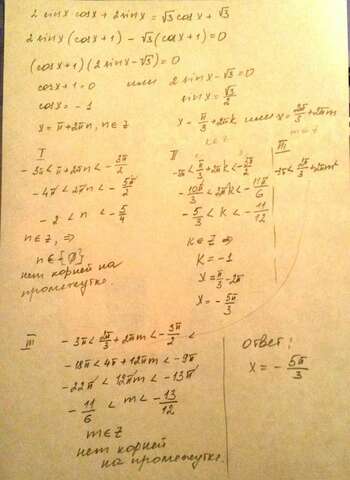 2 sinx cosx + 2 sinx = √3 cosx + √3
2 sinx (cosx + 1) - √3 (cosx + 1) = 0
(cosx + 1)(2 sinx - √3) = 0
cosx + 1 = 0 или 2 sinx - √3 = 0
cosx = -1 sinx = √3/2
x = π + 2πn, n ∈ Z x = π/3 + 2πk или x = 2π/3 + 2πm
k ∈ Z m ∈ Z
I
-3π < π + 2πn < -3π/2
-4π < 2πn < -5π/2
-2 < n < -5/4
n ∈ Z, ⇒
n ∈ {∅}
нет корней на
промежутке.
II
-3π < π/3 + 2πk < -3π/2
-10π/3 < 2πk < -11π/6
-5/3 < k < -11/12
k ∈ Z ⇒
k = -1
x = π/3 - 2π
x = -5π/3
III
-3π < 2π/3 + 2πm
III
-3π < 2π/3 + 2πm < -3π/2
-18π < 4π + 12πm < -9π
-22π < 12πm < -13π
-11/6 < m < -13/12
m ∈ Z
нет корней
на промежутке.
ответ:
x = -5π/3